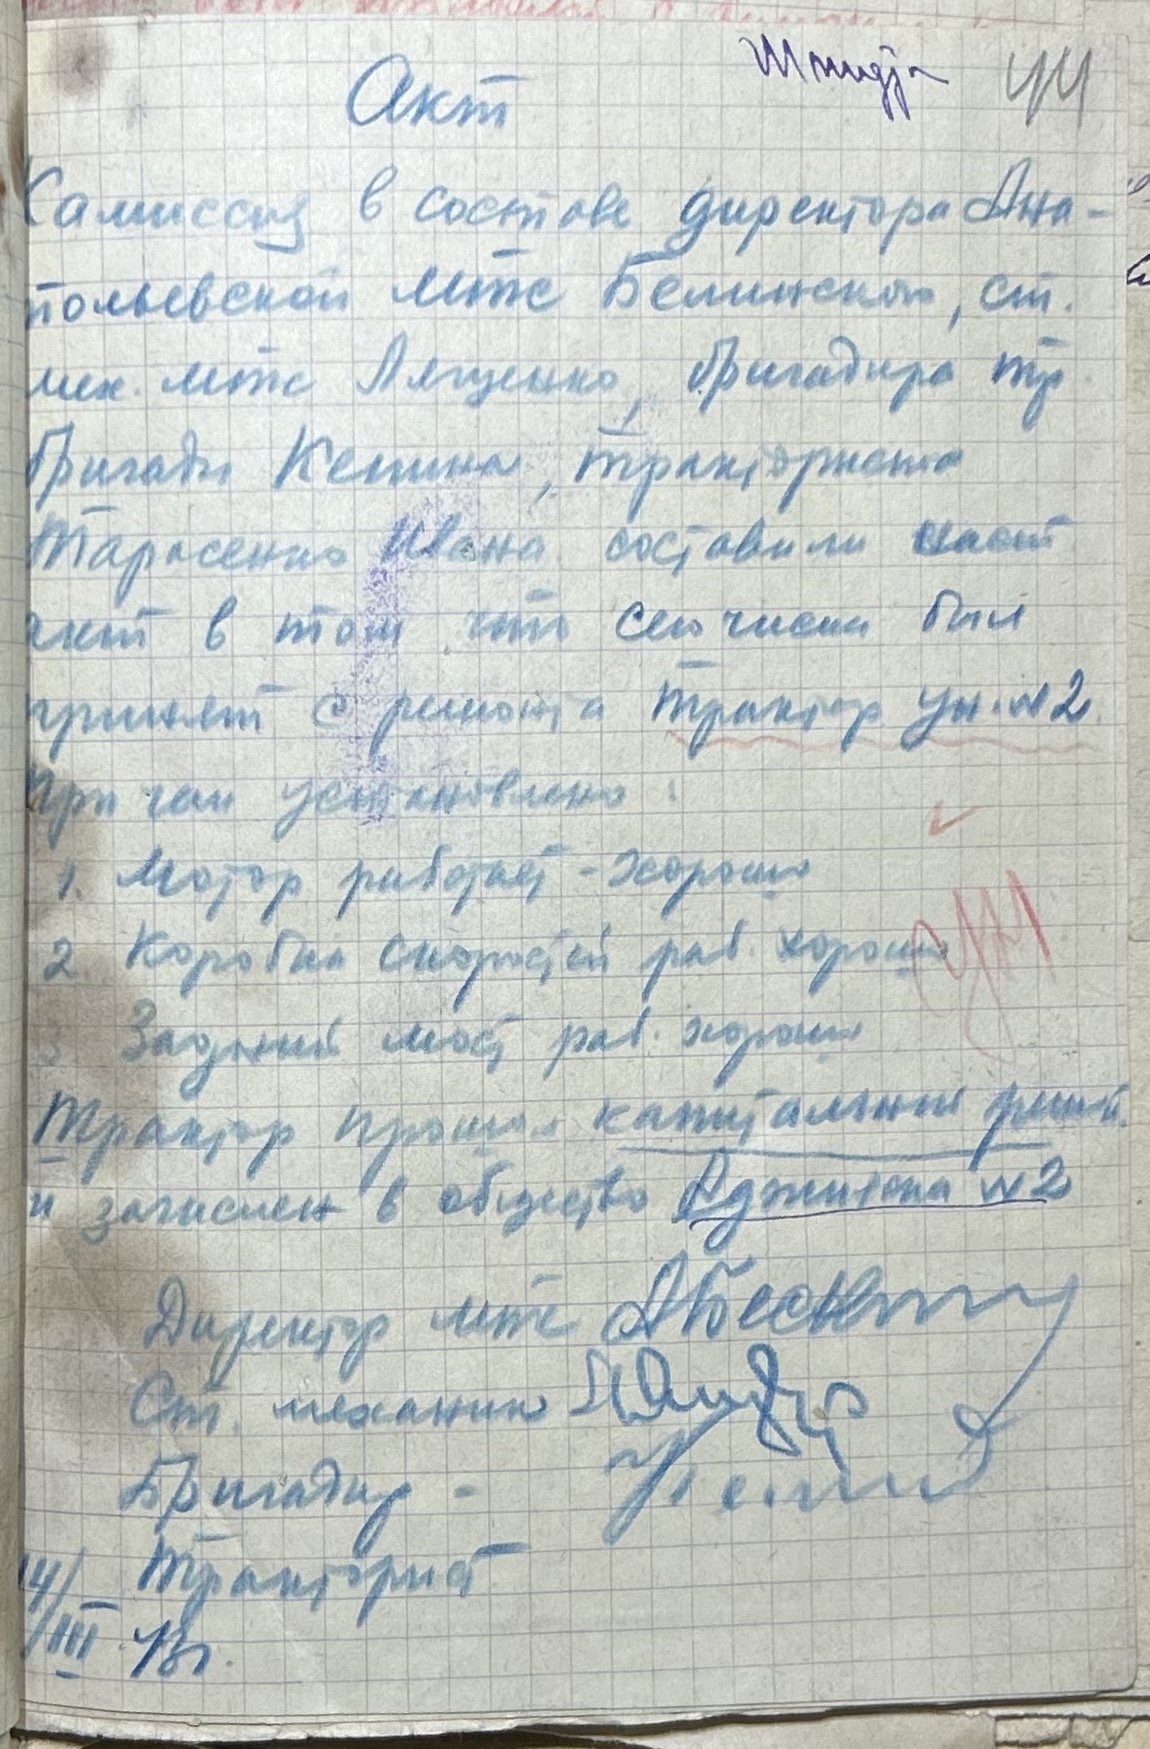 44
Акт
Камиссия в составе директора Ана-
тольевской МТС Белинского, ст.
мех. МТС Лященко, бригадира тр
бригади Кепина, тракториста
Тарасенко Ивана составили наст
акт в том что сего числа был
принят с ремонта трактор Ун. №2
При чем установлено:
1. Мотор работает - хорошо
2 Коробка скоростей раб. хорошо
3 Задний мост раб. хорошо
Трактор прошол капитальний ремонт.
и зачислен в общество №2
Директор МТС
Ст. механик
Бригадир -
Тракторист
14/III 43г.